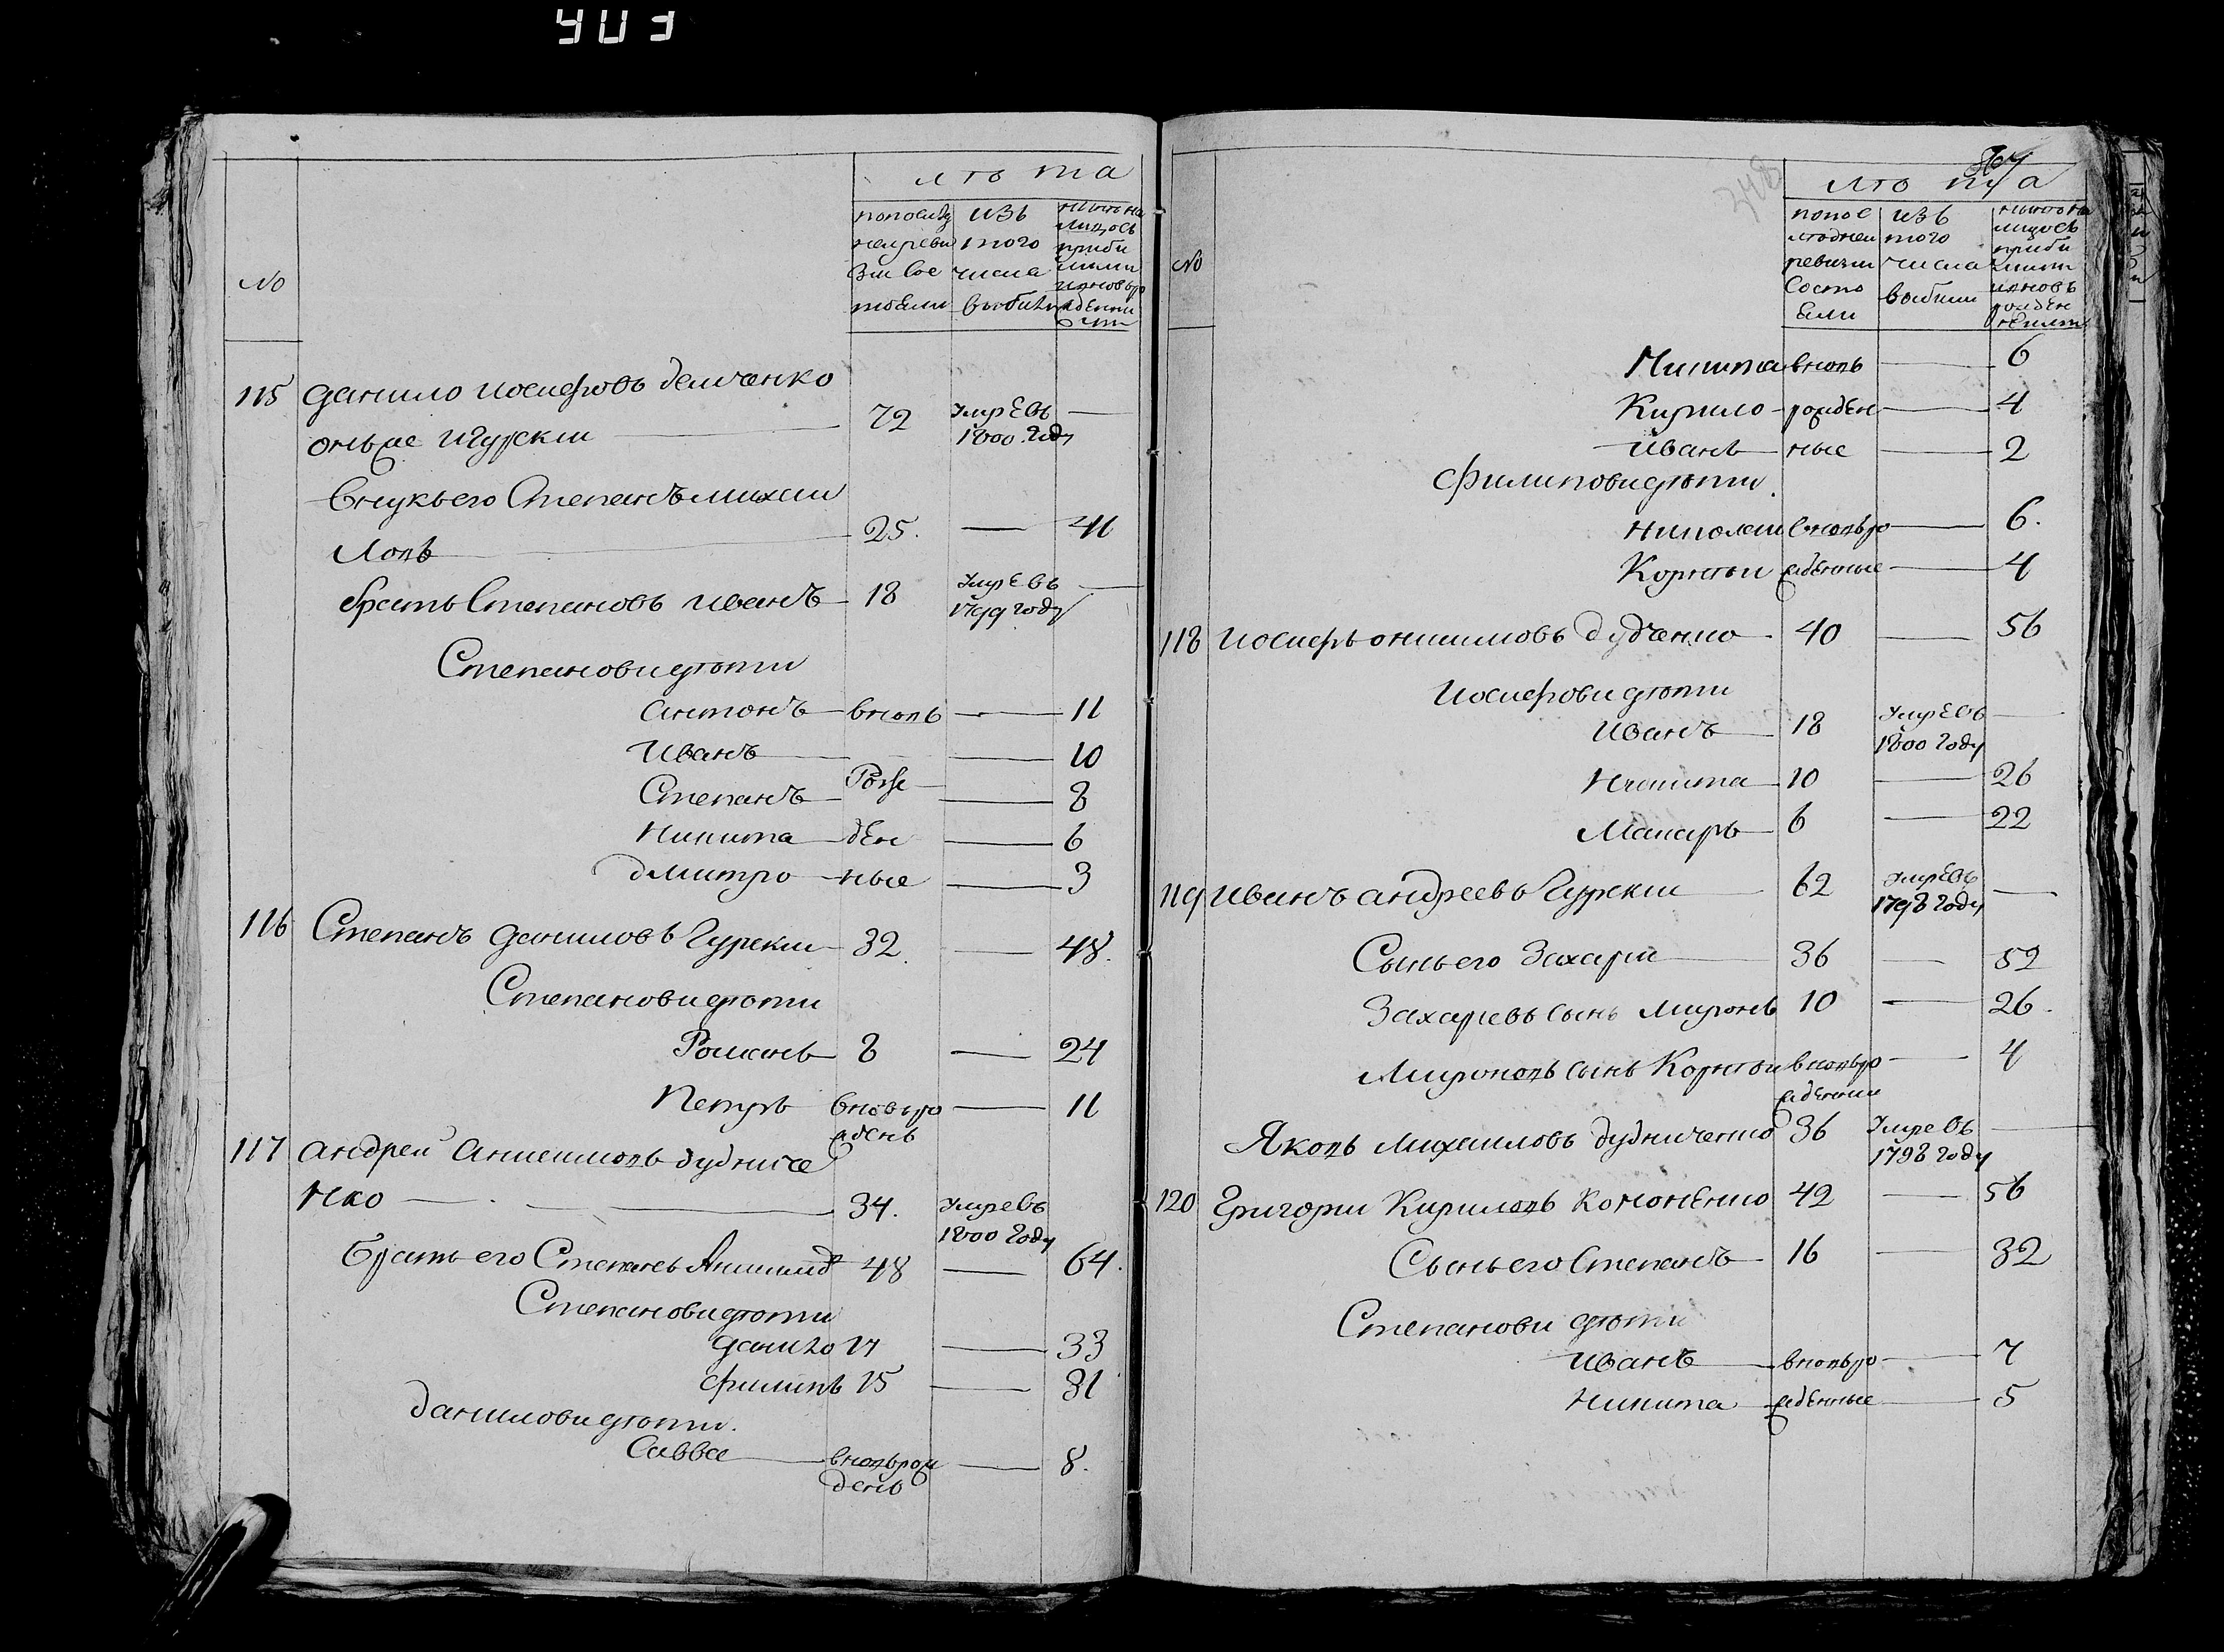 403
лѣта
№
по последней ревизіи состояли
изъ того числа выбыли
115 Данило Иосифовъ Демченко
онъже Игурскии 72 умре въ 1800 году —
Внукъ его Степанъ Михаи
ловъ 25. — 41
братъ Степановъ Иванъ 18 умре въ 1799 году —
Степанови дѣти
антонъ вновь — 11
Иванъ — 10
Степанъ Рож — 8
Никита ден — 6
дмитро ные — 3
116 Степанъ Даниловъ Гурскии 32. — 48.
Степанови дѣти
Романъ 8 — 24
Петръ вновь рожденъ — 11
117 андреи Анисимовъ дудниче
нко 34. умре въ 1800 году
Братъ его Степанъ 48 — 64.
Степанови дѣти
Данило 17 — 33
Филипъ 15 — 31
Данилови дѣти.
Савва вновь рожденъ — 8.
348
лѣта
№
по последнеи ревизии состояли
изъ того числа выбыли
Никита вновь — 6
Кирило рожден — 4
Иванъ ные — 2
Филипови дѣти.
Николаи вновь ро — 6.
Корнѣи жденные — 4
118 Иосифъ онисимовъ дудченко 40 — 56
Иосифови дѣти
Иванъ 18 умре въ 1800 году —
Никита 10 — 26
Макаръ 6 — 22
119 Иванъ андреевъ Гурскии 62 умре въ 1798 году —
Сынъ его Захарии 36 — 52
Захаревъ сынъ Миронъ 10 — 26.
Мироновъ сынъ Корнѣи вновь рожденни — 4
Яковъ Михаиловъ дудниченко 36 умре въ 1798 году —
120 Григории Кириловъ Кононенко 42 — 56
Сынъ его Степанъ 16 — 32
Степанови дѣти
Иванъ вновь ро — 7
Никита жденные — 5